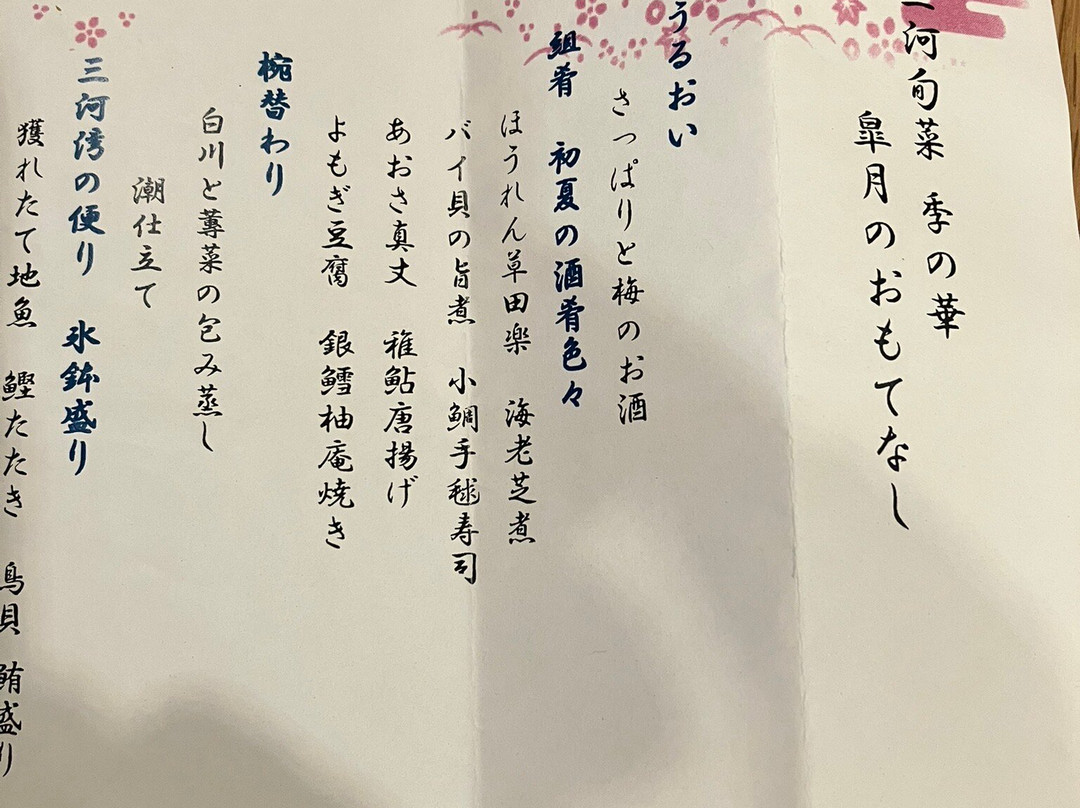 河旬菜 季の華
皐月のおもてなし
うるおい
さっぱりと梅のお酒
組肴 初夏の酒肴色々
ほうれん草田楽 海老芝煮
バイ貝の旨煮 小鯛手毬寿司
あおさ真丈 稚鮎唐揚げ
よもぎ豆腐 銀鱈柚庵焼き
椀替わり
白川と蓴菜の包み蒸し
潮仕立て
三河湾の便り 氷鉢盛り
獲れたて地魚 鰹たたき 鳥貝 鮪盛り